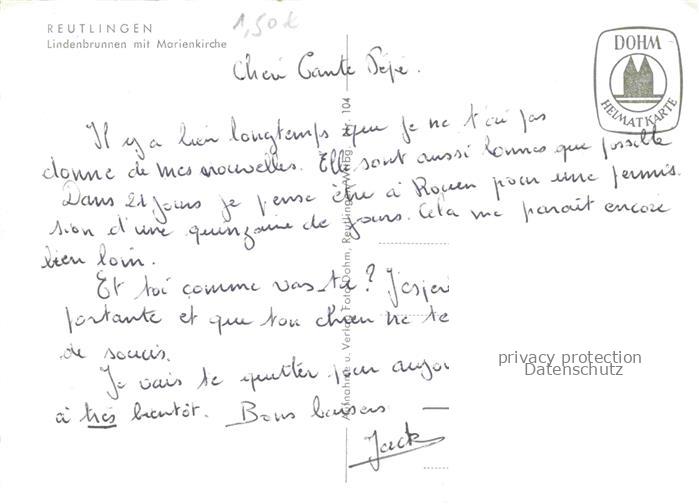 REUTLINGEN
Lindenbrunnen mit Marienkirche
1,50 €
DOHM
HEIMATKARTE
Cheri Tante Pépé.
Il y a bien longtemps que je ne t'ai pas
donne de mes nouvelles. Elle sont aussi bonnes que possible
Dans 21 jours je pense être à Rouen pour une permis.
sion d'une quinzaine de jours. Cela me parait encore
bien loin.
Et toi comme vas-tu? J'esper
portante et que ton chien ne te
de soucis.
Je vais te quitter pour aujou
à très bientôt. Bons baisers
Jack
Aufnahme u. Verlag Foto Dohm, Reutlingen/Wttbg. Nr. 104
privacy protection
Datenschutz